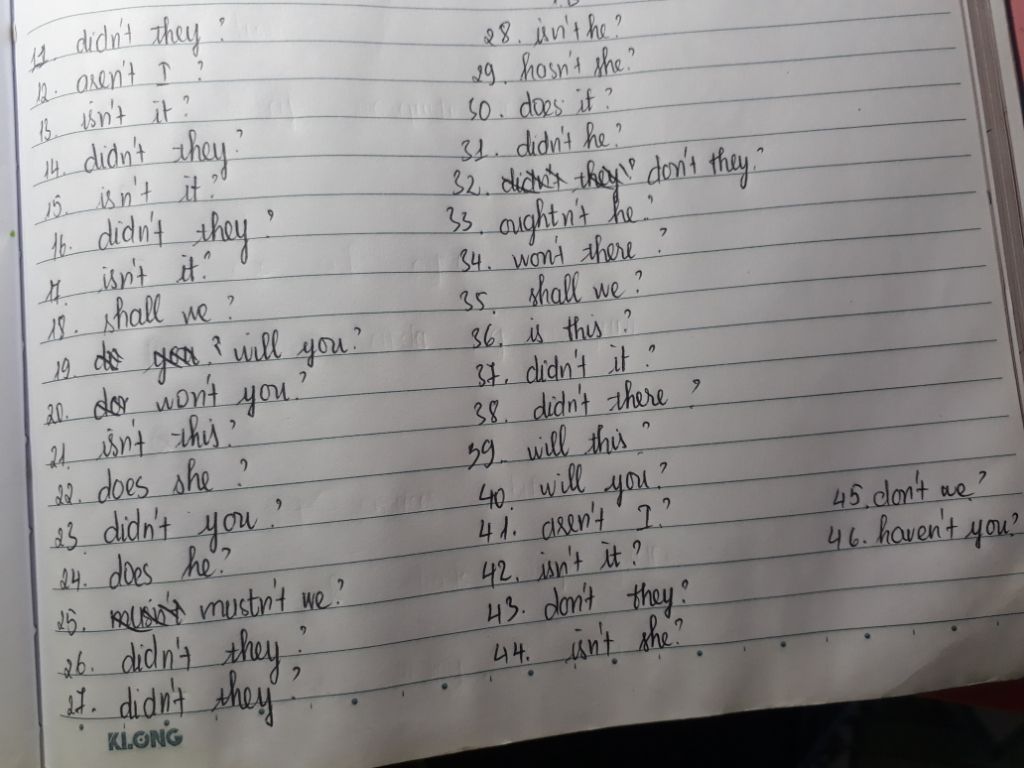 11. didn't they?
12. aren't I?
13. isn't it?
14. didn't they?
15. isn't it?
16. didn't they?
17. isn't it?
18. shall we?
19. do you? will you?
20. won't you?
21. isn't this?
22. does she?
23. didn't you?
24. does he?
25. mustn't we?
26. didn't they?
27. didn't they?
KLONG
28. isn't he?
29. hasn't she?
30. does it?
31. didn't he?
32. didn't they? don't they?
33. oughtn't he?
34. won't there?
35. shall we?
36. is this?
37. didn't it?
38. didn't there?
39. will this?
40. will you?
41. aren't I?
42. isn't it?
43. don't they?
44. isn't she?
45. don't we?
46. haven't you?